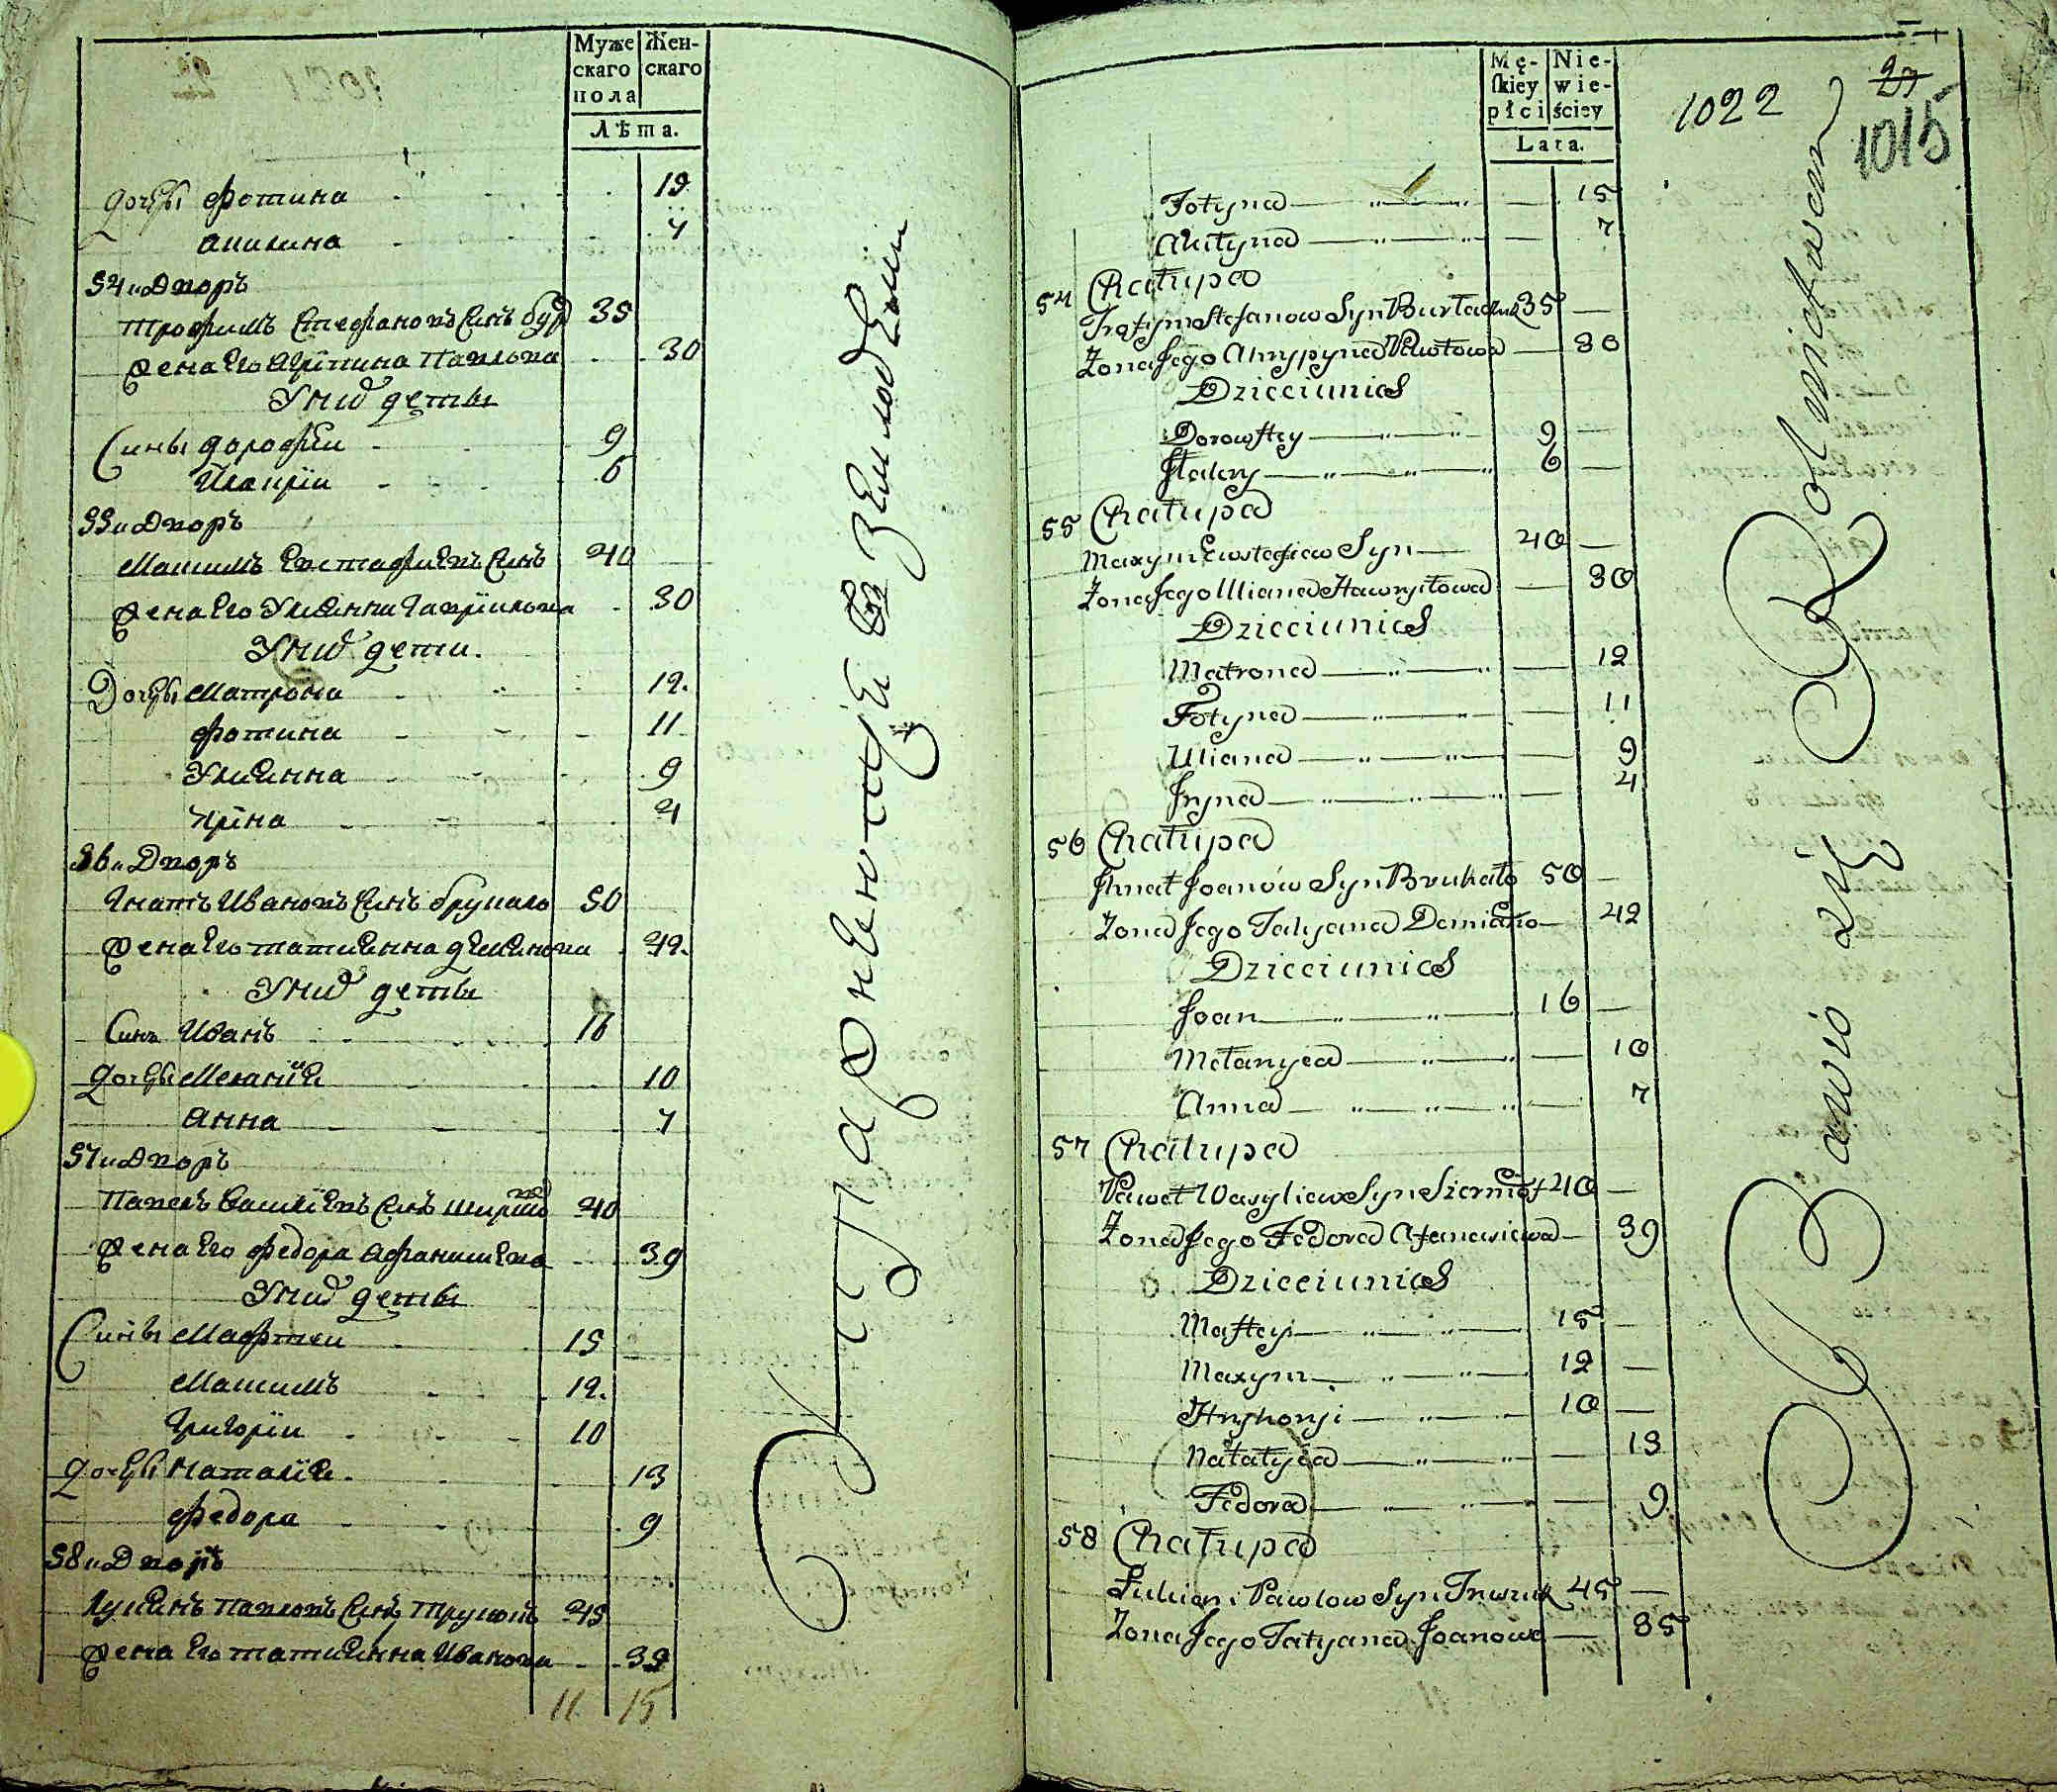 Муже Жен-
скаго скаго
пола
Лѣта.
дочеры фотина 19
акилина 7
54и Дворъ
Трофимъ Стефановъ Синъ бур 35
жена Его Агрипина Павлова 30
Унид дети
Сины дорофей 9
Илкирiи 6
55и Дворъ
Максимъ Евстафиевъ Синъ 40
жена Его Улиянна Гаврiилова 30
Унид дети.
Дочеры Матрона 12.
фотина 11
Улиянна 9
Ирiна 4
56и Дворъ
Игнатъ Ивановъ Синъ брукало 50
жена Его татиянна демянова 42.
Унид дети
Синъ Иванъ 16
дочеры Меланiя 10
анна 7
57и Дворъ
Павелъ Василiевъ Синъ 40
жена Его федора Афанасиева 39
Унид дети
Сины Мафтеи 15
Максимъ 12.
Григорiи 10
дочеры Наталiя. 13
федора 9
58и Дворъ
Лукянъ Павловъ Синъ 45
жена Его татиянна Иванова 35
11 15
упражняющiеся в земледелiи
Mę- Nie-
ſkiey wie-
płci ściey
Lata.
1022
1015
Fotyna 15
Akilyna 7
54 Chałupa
Trofym Stefanow Syn Burłaczuk 35
Żona Jego Ahrypyna Pawłowa 30
Dzieciunies
Dorowftey 9
6
55 Chałupa
Maxym Ewstafiew Syn 40
Żona Jego Uliana Hawryłowa 30
Dzieciunies
Matrona 12
Fotyna 11
Uliana 9
Jryna 4
56 Chałupa
Jhnat Joanow Syn Brukało 50
Żona Jego Tatyana Demiano 42
Dzieciunies
Joan 16
Mełanyea 10
Anna 7
57 Chałupa
Paweł Wasyliew Syn 40
Żona Jego Fedora Afanasiewa 39
Dzieciunies
Maftey 15
Maxym 12
Hryhoryi 10
Natalyea 13
Fedora 9
58 Chałupa
Łukian Pawlow Syn 45
Żona Jego Tatyana Joanowa 35
Bawio się Rolnictwem